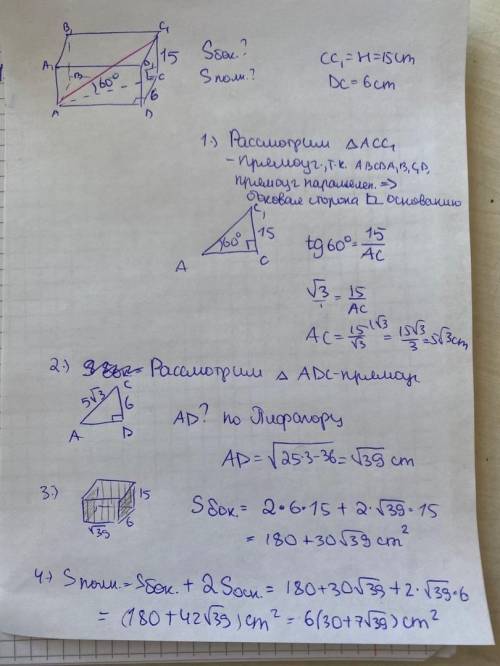 B C₁
A₁ D₁ 15
B C
60° 6
A D
Sбок.?
Sполн.?
CC₁=H=15cm
DC=6cm
1.) Рассмотрим △ACC₁
- прямоуг., т.к. ABCDA₁B₁C₁D₁
прямоуг параллелеп. =>
боковая сторона ⊥ основанию
C₁
60° 15
A C
tg60°=15/AC
√3/1=15/AC
AC=15/√3^(1√3=15√3/3=5√3cm
2.) Рассмотрим △ ADC-прямоуг
C
5√3 6
A D
AD? по Пифагору
AD=√25·3-36=√39 cm
3.)
15
√39 6
Sбок.= 2·6·15+2·√39·15
=180+30√39 cm²
4.) Sполн.=Sбок.+2Sосн.=180+30√39+2·√39·6
=(180+42√39)cm²=6(30+7√39)cm²